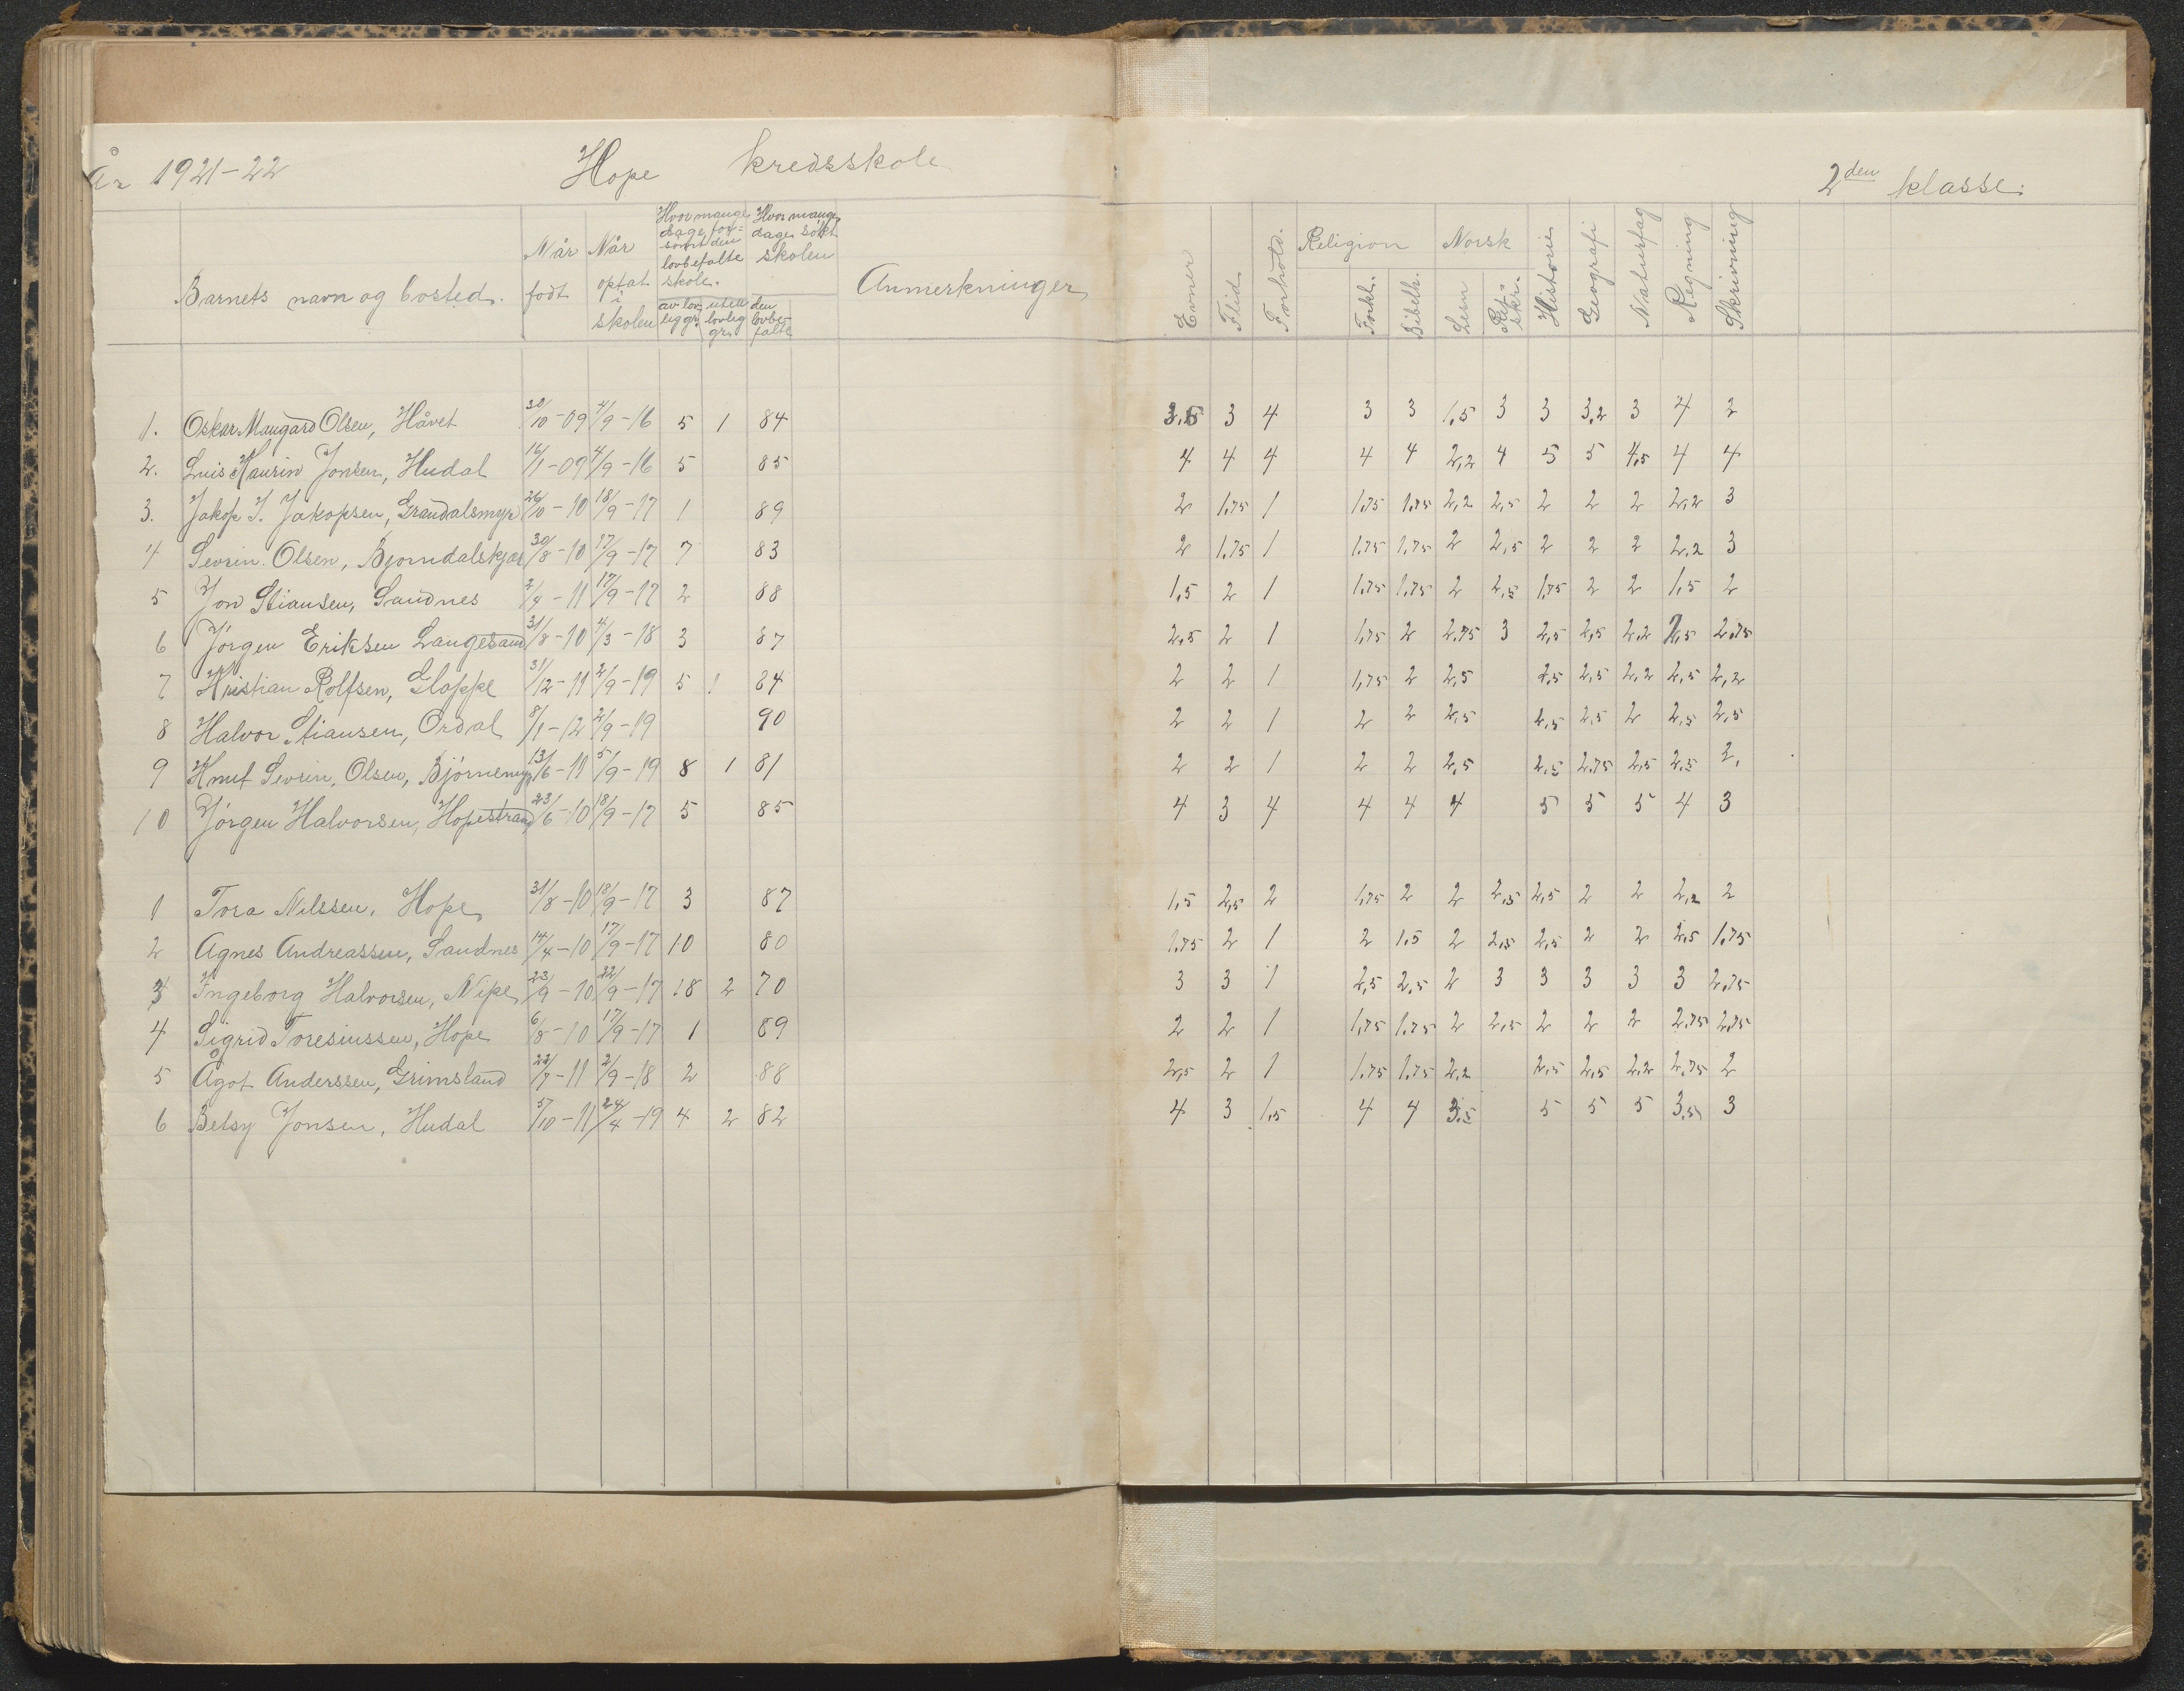 År 1921-22 Hope kredsskole 2den klasse.
Barnets navn og bosted. Når født Når optat i skolen Hvor mange dage forsømt den lovbefalte skole. av lovlig gr. uten lovlig gr. Hvor mange dage søkt skolen den lovbefalte Anmerkninger Evner Flid Forhold. Religion Forkl. Bibelh. Norsk Lesn Retskr. Historie Geografi Naturfag Regning Skrivning
1. Oskar Maugard Olsen, Håvet 30/10-09 4/9-16 5 1 84 3,5 3 4 3 3 1,5 3 3 3,2 3 4 2
2. Luis Kaurin Jonsen, Hudal 16/1-09 4/9-16 5 85 4 4 4 4 4 2,2 4 5 5 4,5 4 4
3. Jakop J. Jakopsen, Grandalsmyr 26/10-10 18/9-17 1 89 2 1,75 1 1,75 1,75 2,2 2,5 2 2 2 2,2 3
4 Sevrin Olsen, Bjorndalskjær 30/8-10 17/9-17 7 83 2 1,75 1 1,75 1,75 2 2,5 2 2 2 2,2 3
5 Jon Stiansen, Sandnes 2/4-11 17/9-17 2 88 1,5 2 1 1,75 1,75 2 2,5 1,75 2 2 1,5 2
6 Jørgen Eriksen Langesand 31/8-10 4/3-18 3 87 2,5 2 1 1,75 2 2,75 3 2,5 2,5 2,2 2,5 2,75
7 Kristian Rolfsen, Gloppe 31/12-11 2/9-19 5 1 84 2 2 1 1,75 2 2,5 2,5 2,5 2,2 2,5 2,2
8 Halvor Stiansen, Ordal 8/1-12 2/9-19 90 2 2 1 2 2 2,5 2,5 2,5 2 2,5 2,5
9 Knut Sevrin Olsen, Bjørnemyr 13/6-11 5/9-19 8 1 81 2 2 1 2 2 2,5 2,5 2,75 2,5 2,5 2,
10 Jørgen Halvorsen, Hopestrand 23/6-10 18/9-17 5 85 4 3 4 4 4 4 5 5 5 4 3
1 Tora Nilssen, Hope 31/8-10 18/9-17 3 87 1,5 2,5 2 1,75 2 2 2,5 2,5 2 2 2,2 2
2 Agnes Andreassen, Sandnes 14/4-10 17/9-17 10 80 1,75 2 1 2 1,5 2 2,5 2,5 2 2 2,5 1,75
3 Ingeborg Halvorsen, Nipe 23/9-10 22/9-17 18 2 70 3 3 1 2,5 2,5 2 3 3 3 3 3 2,75
4 Sigrid Toresiussen, Hope 6/8-10 17/9-17 1 89 2 2 1 1,75 1,75 2 2,5 2 2 2 2,75 2,75
5 Ågot Anderssen, Grimsland 22/7-11 2/9-18 2 88 2,5 2 1 1,75 1,75 2,2 2,5 2,5 2,2 2,75 2
6 Betsy Jonsen, Hudal 5/10-11 24/4-19 4 2 82 4 3 1,5 4 4 3,5 5 5 5 3,5 3